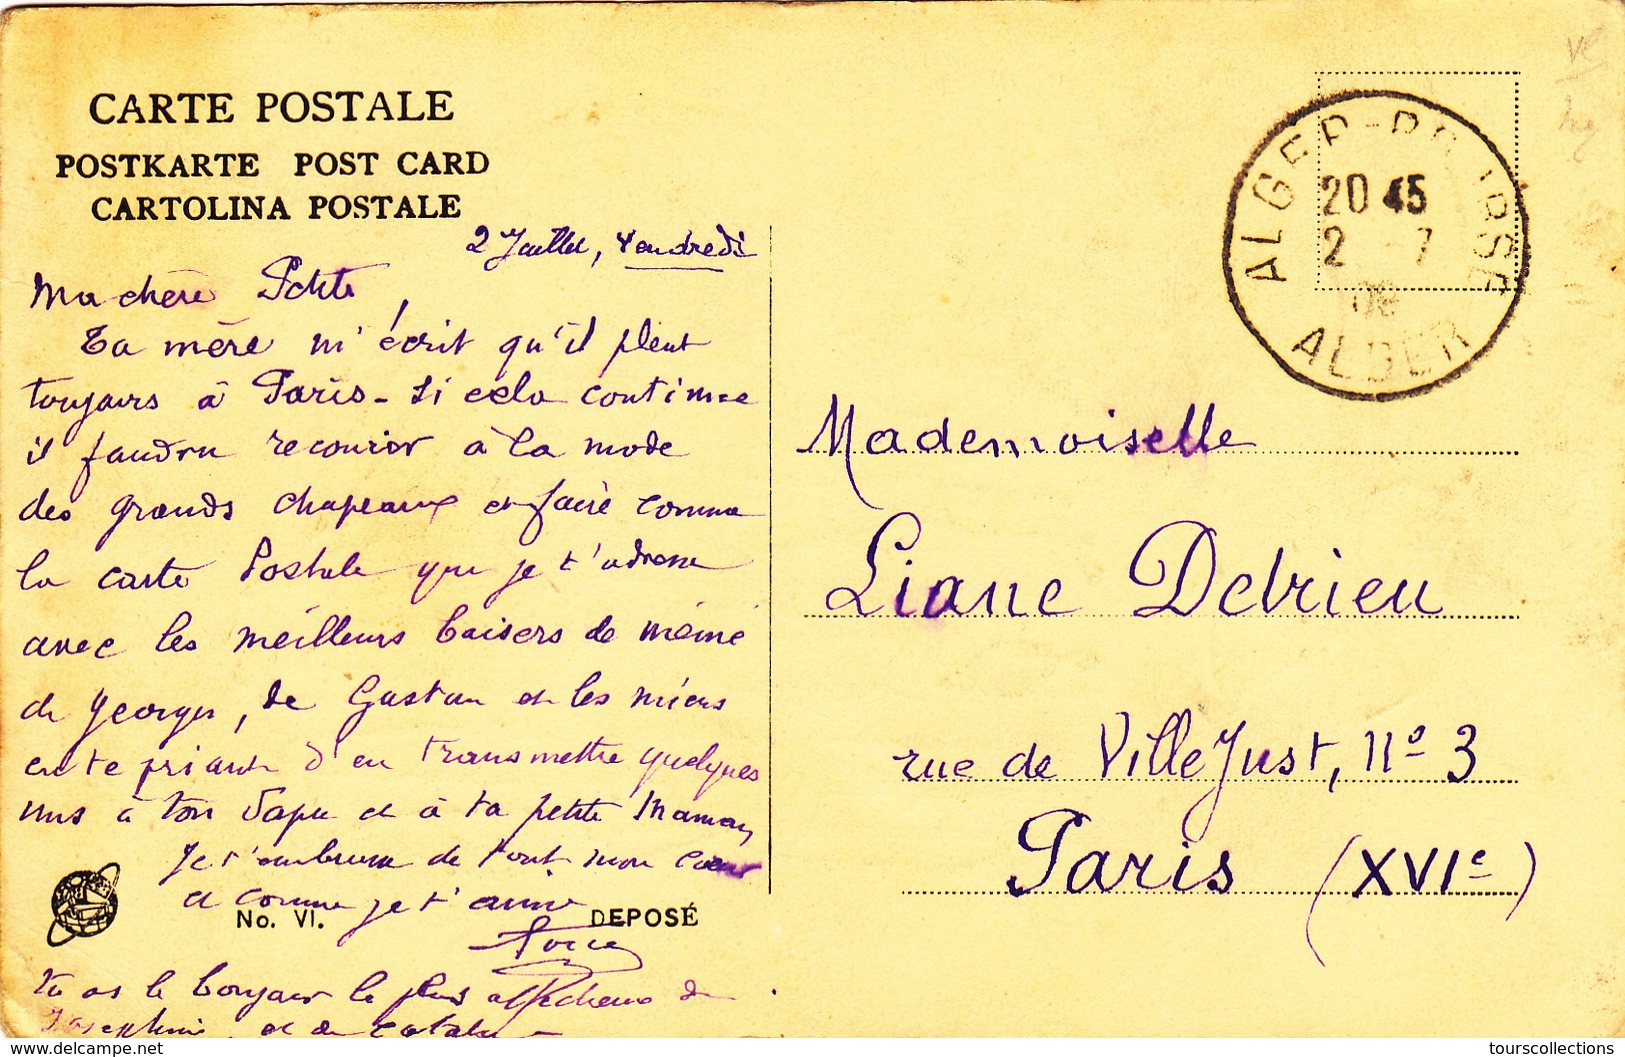 CARTE POSTALE
POSTKARTE POST CARD
CARTOLINA POSTALE
2 Juillet, Vendredi
Ma chère Petite,
Ta mère m'écrit qu'il pleut
toujours à Paris - Si cela continue
il faudra recourir à la mode
des grands chapeaux et faire comme
la carte Postale que je t'adresse
avec les meilleurs baisers de mémé
de Georges, de Gaston et les miens
en te priant d'en transmettre quelques
uns à ton Papa et à ta petite Maman,
Je t'embrasse de tout mon cœur
et comme je t'aime
No. VI.
DEPOSÉ
Tu as le bonjour le plus de
Joséphine, et de
ALGER-BOURSE
20 45
2 7
09
ALGER
Mademoiselle
Liane Debrieu
rue de Villejust, nº 3
Paris (XVIe)
http://www.delcampe.net
tourscollections